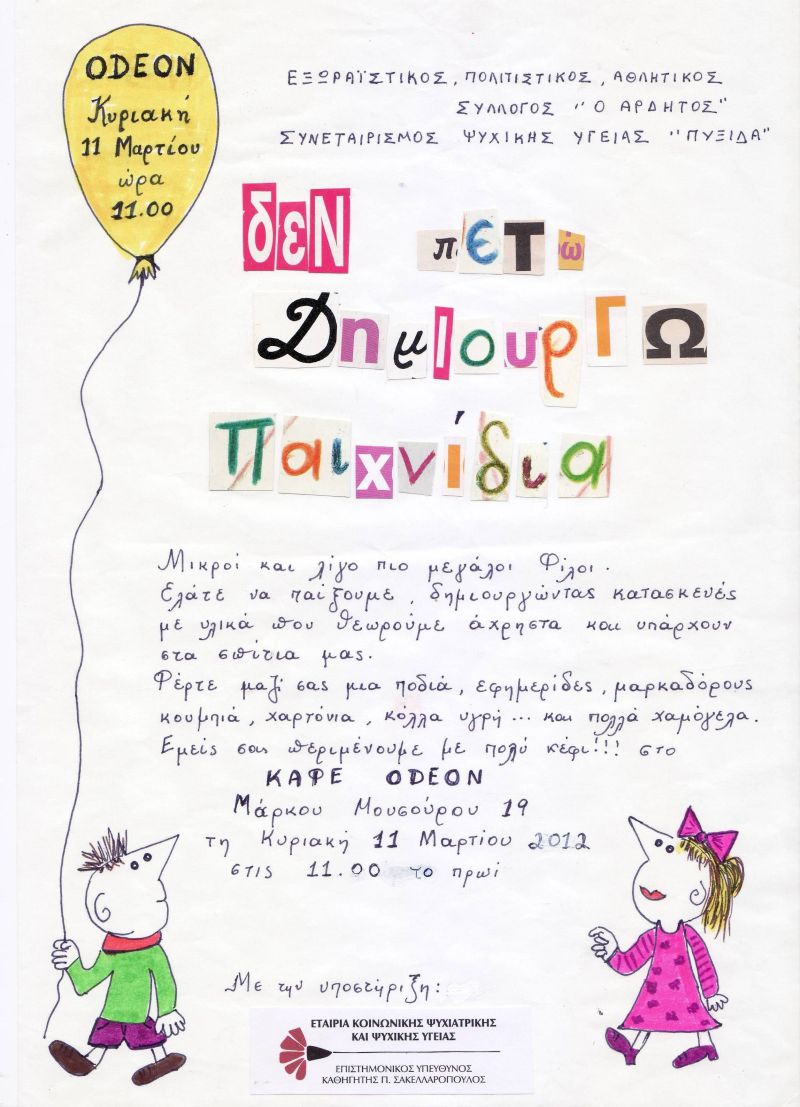 ODEON
Κυριακή
11 Μαρτίου
ώρα
11.00
ΕΞΩΡΑΪΣΤΙΚΟΣ, ΠΟΛΙΤΙΣΤΙΚΟΣ, ΑΘΛΗΤΙΚΟΣ
ΣΥΛΛΟΓΟΣ "Ο ΑΡΔΗΤΟΣ"
ΣΥΝΕΤΑΙΡΙΣΜΟΣ ΨΥΧΙΚΗΣ ΥΓΕΙΑΣ "ΠΥΞΙΔΑ"
δεΝ πετώ
ΔημιουργΩ
Παιχνίδια
Μικροί και λίγο πιο μεγάλοι Φίλοι.
Ελάτε να παίξουμε, δημιουργώντας κατασκευές
με υλικά που θεωρούμε άχρηστα και υπάρχουν
στα σπίτια μας.
Φέρτε μαζί σας μια ποδιά, εφημερίδες, μαρκαδόρους
κουμπιά, χαρτόνια, κόλλα υγρή... και πολλά χαμόγελα.
Εμείς σας περιμένουμε με πολύ κέφι!!! στο
ΚΑΦΕ ODEON
Μάρκου Μουσούρου 19
τη Κυριακή 11 Μαρτίου 2012
στις 11.00 το πρωί
Με την υποστήριξη:
ΕΤΑΙΡΙΑ ΚΟΙΝΩΝΙΚΗΣ ΨΥΧΙΑΤΡΙΚΗΣ
ΚΑΙ ΨΥΧΙΚΗΣ ΥΓΕΙΑΣ
ΕΠΙΣΤΗΜΟΝΙΚΟΣ ΥΠΕΥΘΥΝΟΣ
ΚΑΘΗΓΗΤΗΣ Π. ΣΑΚΕΛΛΑΡΟΠΟΥΛΟΣ